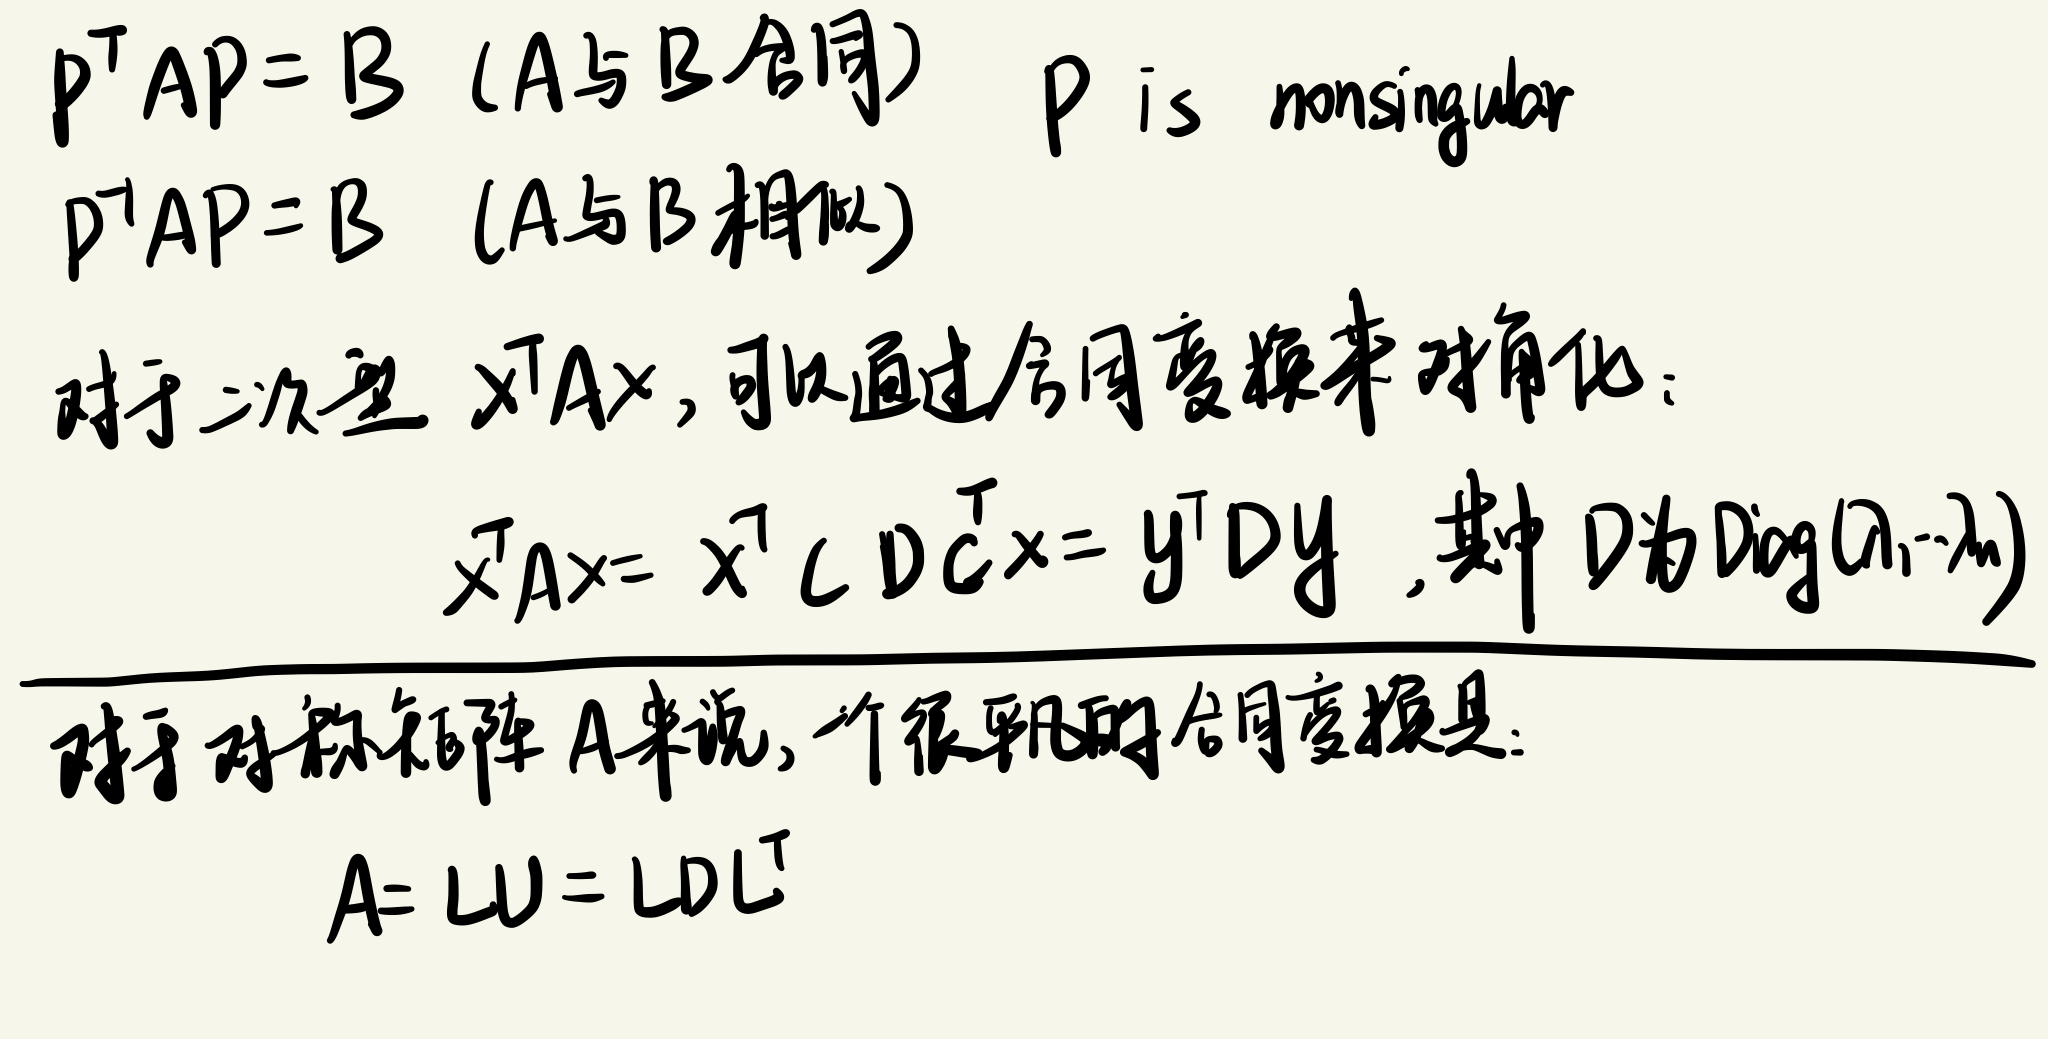 Pᵀ AP = B (A与B合同) P is nonsingular
P⁻¹AP = B (A与B相似)
对于二次型 xᵀAx，可以通过合同变换来对角化：
xᵀAx = xᵀ C D Cᵀ x = yᵀ D y ，其中 D为Diag(λ₁…λₙ)
对于对称矩阵 A来说，一个很平凡的合同变换是：
A = LU = LDLᵀ